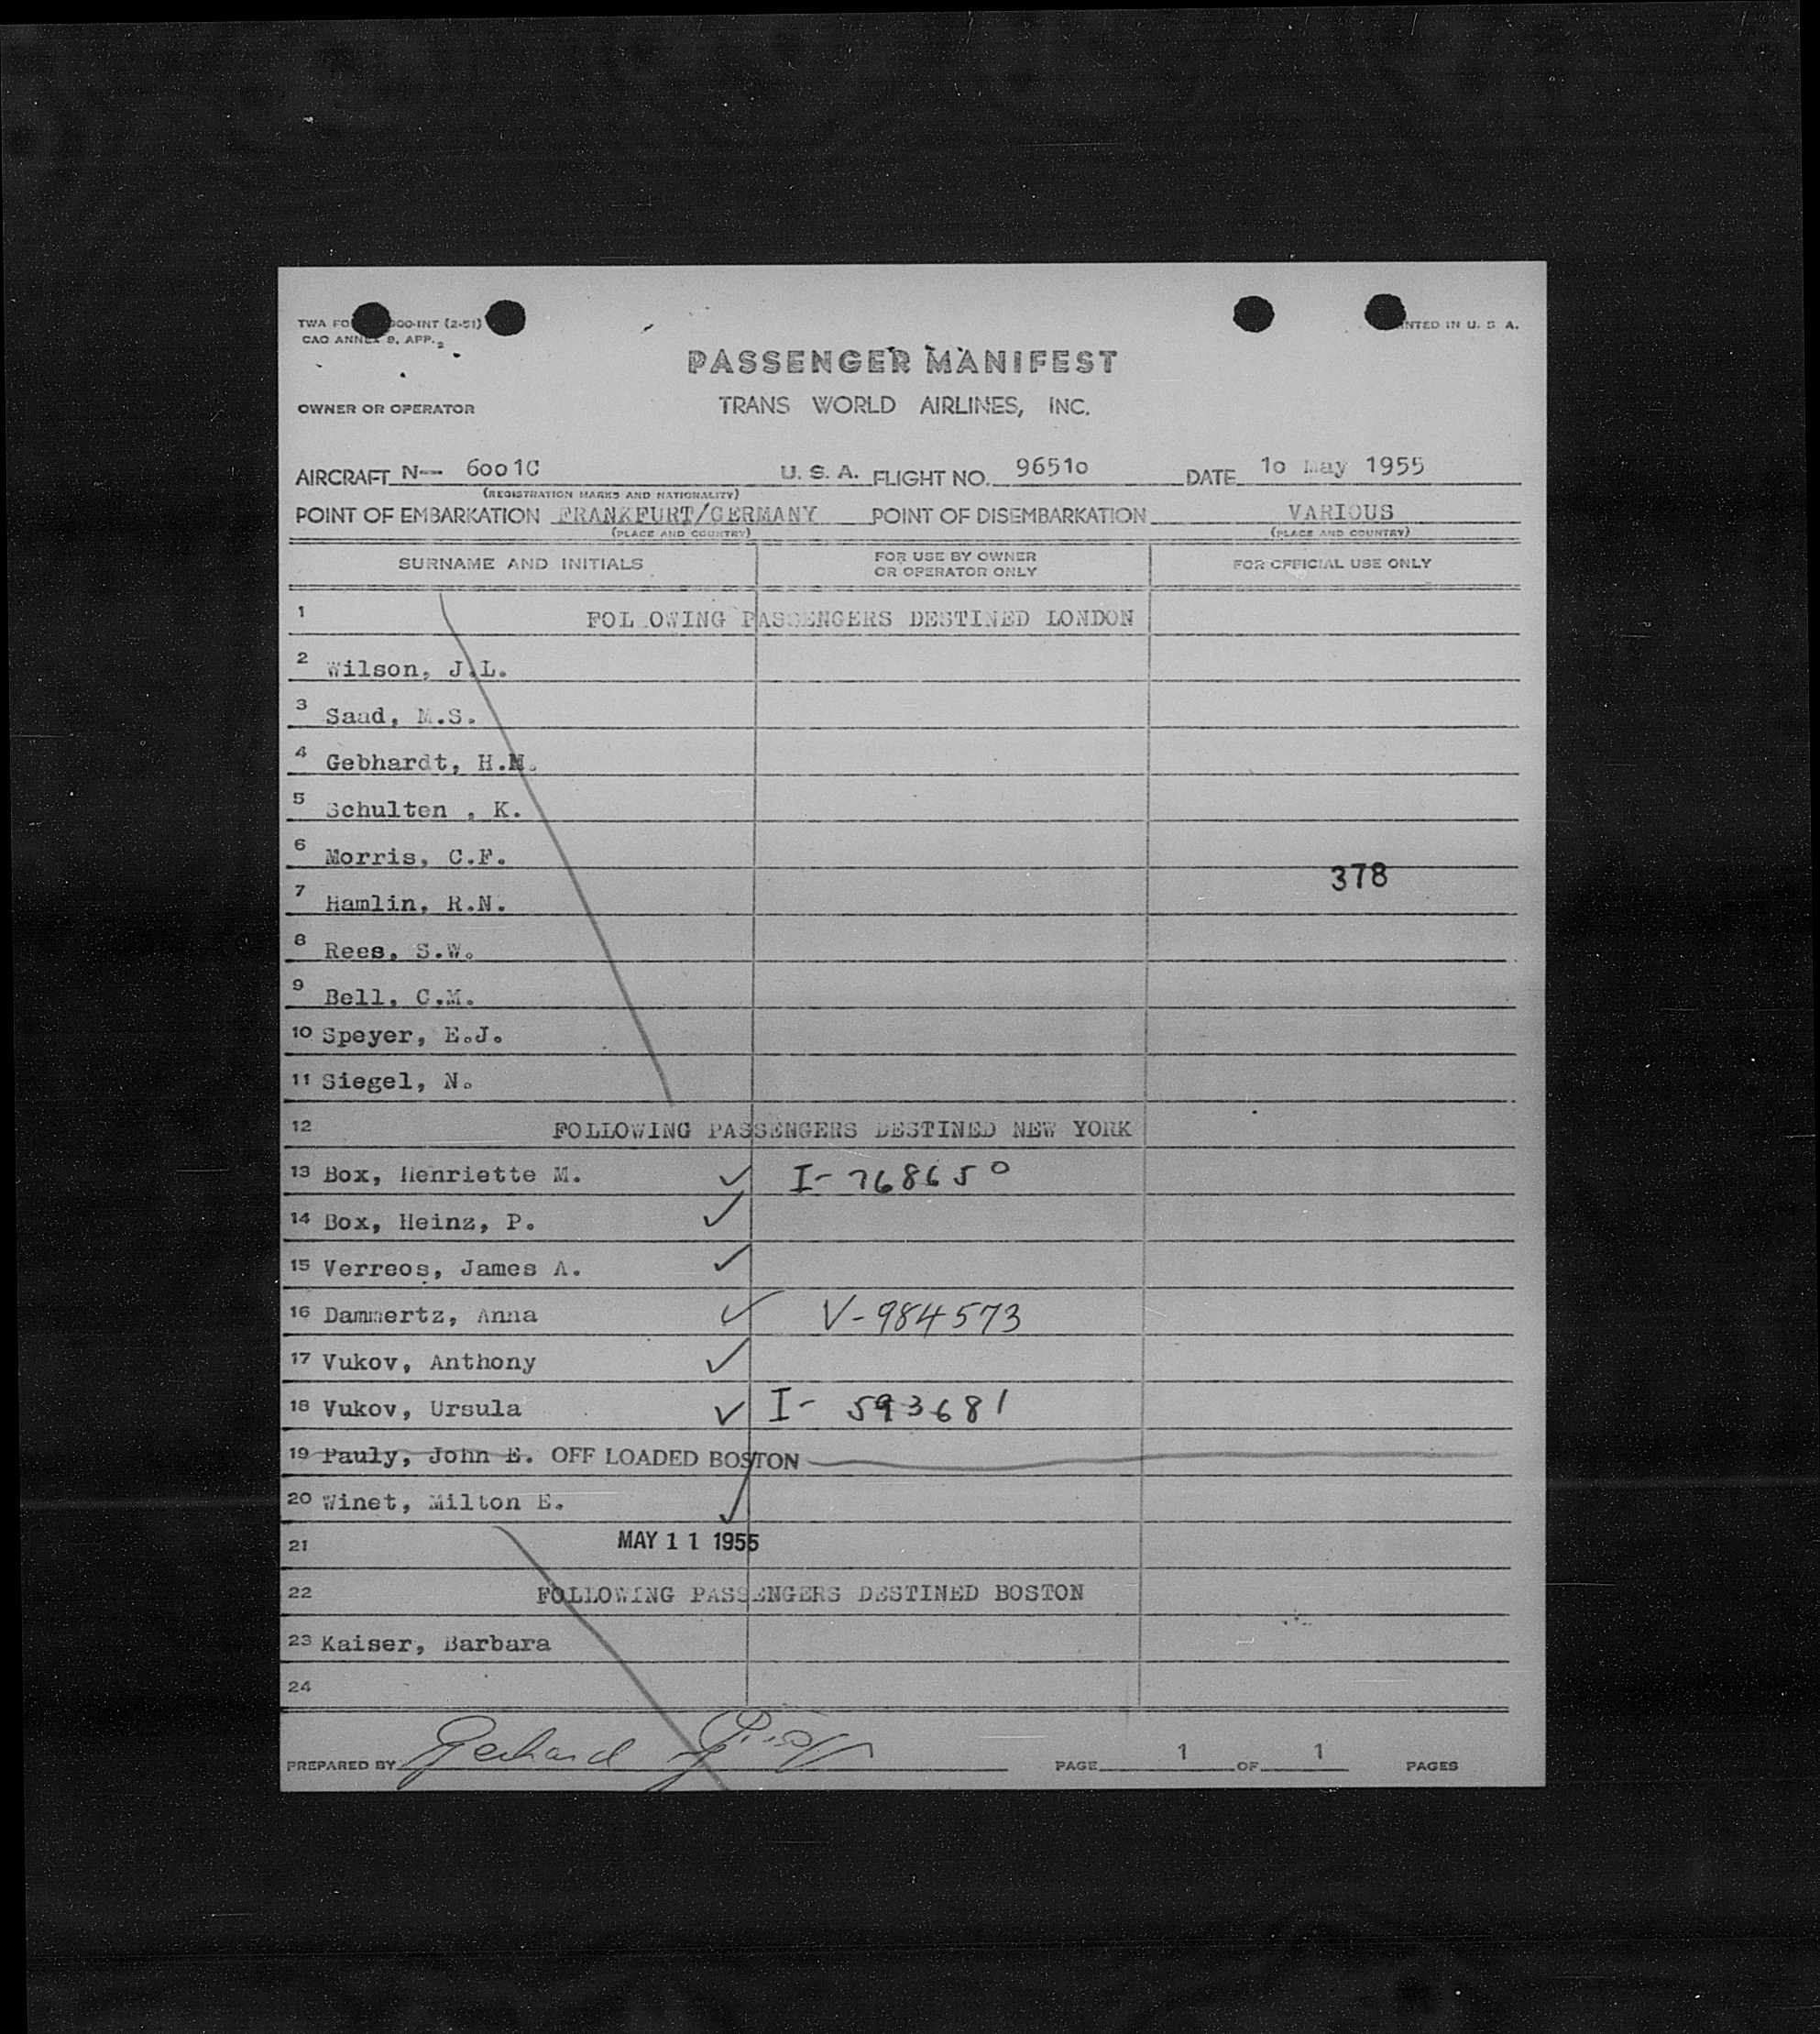 TWA FO 900-INT (2-51)
NTED IN U. S. A.
CAO ANNEX 9, APP. 2
PASSENGER MANIFEST
OWNER OR OPERATOR TRANS WORLD AIRLINES, INC.
AIRCRAFT N-- 6001C U. S. A. FLIGHT NO. 96510 DATE 10 May 1955
(REGISTRATION MARKS AND NATIONALITY)
POINT OF EMBARKATION FRANKFURT/GERMANY POINT OF DISEMBARKATION VARIOUS
(PLACE AND COUNTRY) (PLACE AND COUNTRY)
SURNAME AND INITIALS FOR USE BY OWNER OR OPERATOR ONLY FOR OFFICIAL USE ONLY
1 FOL OWING PASSENGERS DESTINED LONDON
2 Wilson, J.L.
3 Saad, M.S.
4 Gebhardt, H.M.
5 Schulten , K.
6 Morris, C.F.
378
7 Hamlin, R.N.
8 Rees, S.W.
9 Bell, C.M.
10 Speyer, E.J.
11 Siegel, N.
12 FOLLOWING PASSENGERS DESTINED NEW YORK
13 Box, Henriette M. ✓ I-768650
14 Box, Heinz, P. ✓
15 Verreos, James A. ✓
16 Dammertz, Anna ✓ V-984573
17 Vukov, Anthony ✓
18 Vukov, Ursula ✓ I- 593681
19 Pauly, John E. OFF LOADED BOSTON
20 Winet, Milton E. ✓
21 MAY 11 1955
22 FOLLOWING PASSENGERS DESTINED BOSTON
23 Kaiser, Barbara
24
PREPARED BY Gerhard PAGE 1 OF 1 PAGES